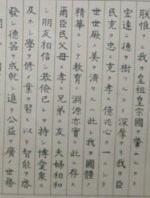 朕惟フニ我カ皇祖皇宗國ヲ肇ムルコト
宏遠ニ德ヲ樹ツルコト深厚ナリ我カ臣
民克ク忠ニ克ク孝ニ億兆心ヲ一ニシテ
世世厥ノ美ヲ濟セルハ此レ我カ國體ノ
精華ニシテ教育ノ淵源亦實ニ此ニ存ス
爾臣民父母ニ孝ニ兄弟ニ友ニ夫婦相和
シ朋友相信シ恭儉己レヲ持シ博愛衆ニ
及ホシ學ヲ修メ業ヲ習ヒ以テ智能ヲ啓
發シ德器ヲ成就シ進テ公益ヲ廣メ世務